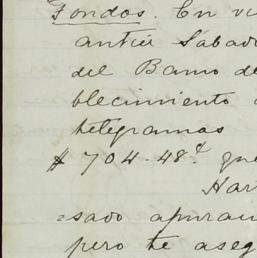 Fondos. En vi
antier Sábado
del Banco de
blecimiento
telegramas
$704.48¢ que
Har
sado apuran
pero te aseg